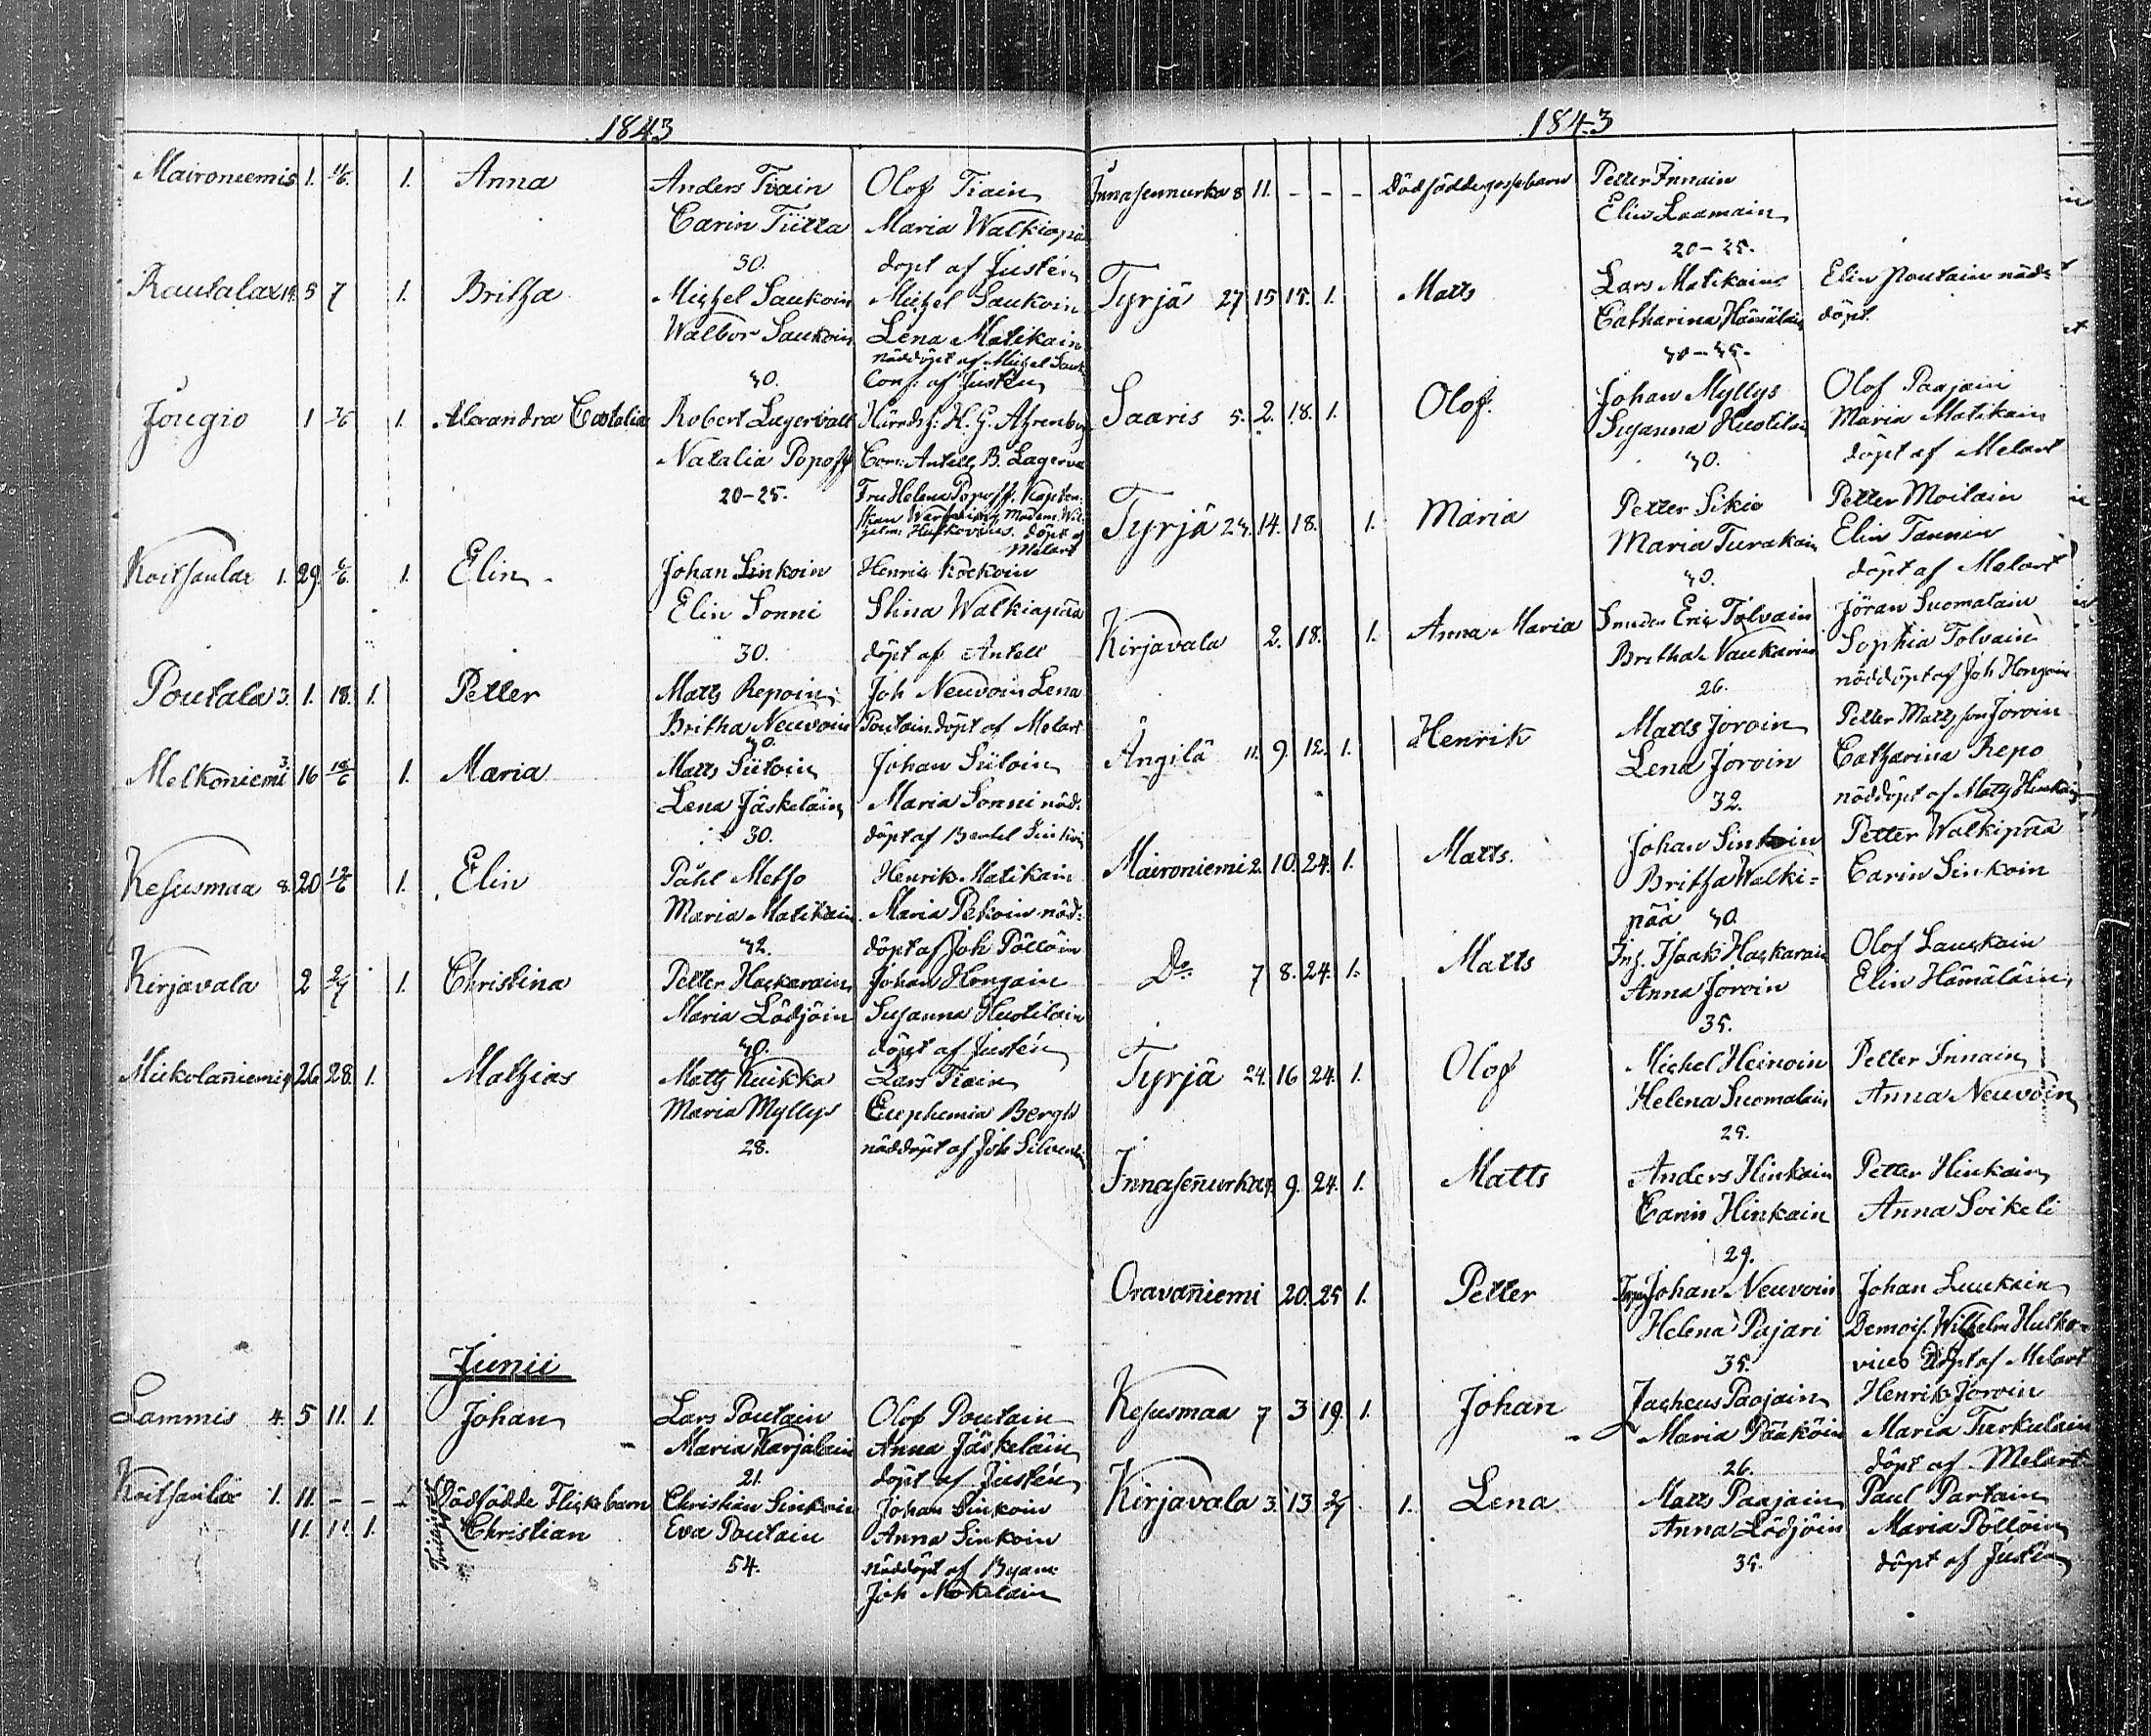 1843
Maironiemis 1. 1. Anna Anders Tiain Olof Tiain
Carin Tiitta Maria Walkiapä
30. döpt af Justén
Rautalax 5 7 1. Britha Michel Saukoin Michel Saukoin
Walbor Saukoin Lena Matikain
nöddöpt af Michel Sauk
40. Conf: af Justén
Jougio 1 1. Alexandra Robert Lagervall H. G. Ahrenberg
Natalia Popoff Antell, B. Lagerva
20-25. Fru Helena Popoff, Kapten-
skan Mademois: Wil-
helm: Hutkovius. döpt af
Melart
Koitsanlax 1. 29. 1. Elin Johan Sinkoin Henric Kockoin
Elin Sonni Stina Walkiapää
30. döpt af Antell
Poutala 3. 1. 18. 1. Petter Matts Repoin Joh Neuvoin Lena
Britha Neuvoin Poutain döpt af Melart
40.
Melkoniemi 3. 16 18/6 1. Maria Matts Siitoin Johan Siitoin
Lena Jäskeläin Maria Sonni nöd:
30. döpt af Bertel Sinkoin
Kesusmaa 8. 20 1. Elin Påhl Metso Henrik Matikain
Maria Matikain Maria Pekoin nöd:
42. döpt af Joh Pöllöin
Kirjavala 2 2/7 1. Christina Petter Hackarain Johan Hongain
Maria Lödjöin Susanna Huotilain
40. döpt af Justén
Mickolaniemi 9. 26 28. 1. Mathias Matts Kuikka Lars Tiain
Maria Myllys Euphemia Bergh
28. nöddöpt af Joh Silven
Junii
Lammis 4. 5 11. 1. Johan Lars Poutain Olof Poutain
Maria Karjalain Anna Jäskeläin
21. döpt af Justén
Koitsanlax 1. 11. - - - Dödfödde Flickebarn Christian Sinkoin Johan Sinkoin
11. 11. 1. Christian Eva Poutain Anna Sinkoin
54. nöddöpt af Byam:
Joh Mokelain
1843
Innasennurka 8 11. - - - Dödfödde gossebarn Petter Innain
Elin Laamain
20-25.
Tyrjä 27 15 15. 1. Matts Lars Matikain Elin Poutain nöd:
Catharina Hämäläin döpt.
40-45.
Saaris 5. 2. 18. 1. Olof. Johan Myllys Olof Paajain
Susanna Huotilai Maria Matikain
40. döpt af Melart
Tyrjä 24. 14. 18. 1. Maria Petter Sikio Petter Moilain
Maria Turakain Elin Tannin
40. döpt af Melart
Kirjavala 2. 18. 1. Anna Maria Smeden Eric Tolvain Jöran Suomalain
Britha Naukarin Sophia Tolvain
26. nöddöpt af Joh Hongain
Ängilä 11. 9. 12. 1. Henrik Matts Joroin Petter Mattsson Joroin
Lena Joroin Catharina Repo
32. nöddöpt af Matts Hinkain
Maironiemi 2. 10. 24. 1. Matts. Johan Sinkoin Petter Walkipää
Britha Walki- Carin Sinkoin
pää 40.
Do 7 8. 24. 1. Matts Inh. Isaak Hackarain Olof Lauckain
Anna Joroin Elin Hämäläin
35.
Tyrjä 24. 16 24. 1. Olof Michel Heinoin Petter Innain
Helena Suomalain Anna Neuvoin
25.
Innasennurka 9. 24. 1. Matts Anders Hinkain Petter Hinkain
Carin Hinkain Anna Soikeli
29.
Oravaniemi 20. 25 1. Petter Johan Neuvoin Johan Luukain
Helena Pajari Demois. Wilhelm Hutko-
35. vius Döpt af Melart
Kesusmaa 7 3 19. 1. Johan Zacheus Paajain Henrik Joroin
Maria Pääköin Maria Turkulain
26. döpt af Melart
Kirjavala 3. 13 2/7 1. Lena Matts Paajain Paul Partain
Anna Lödjöin Maria Pöllöin
35. döpt af Justén